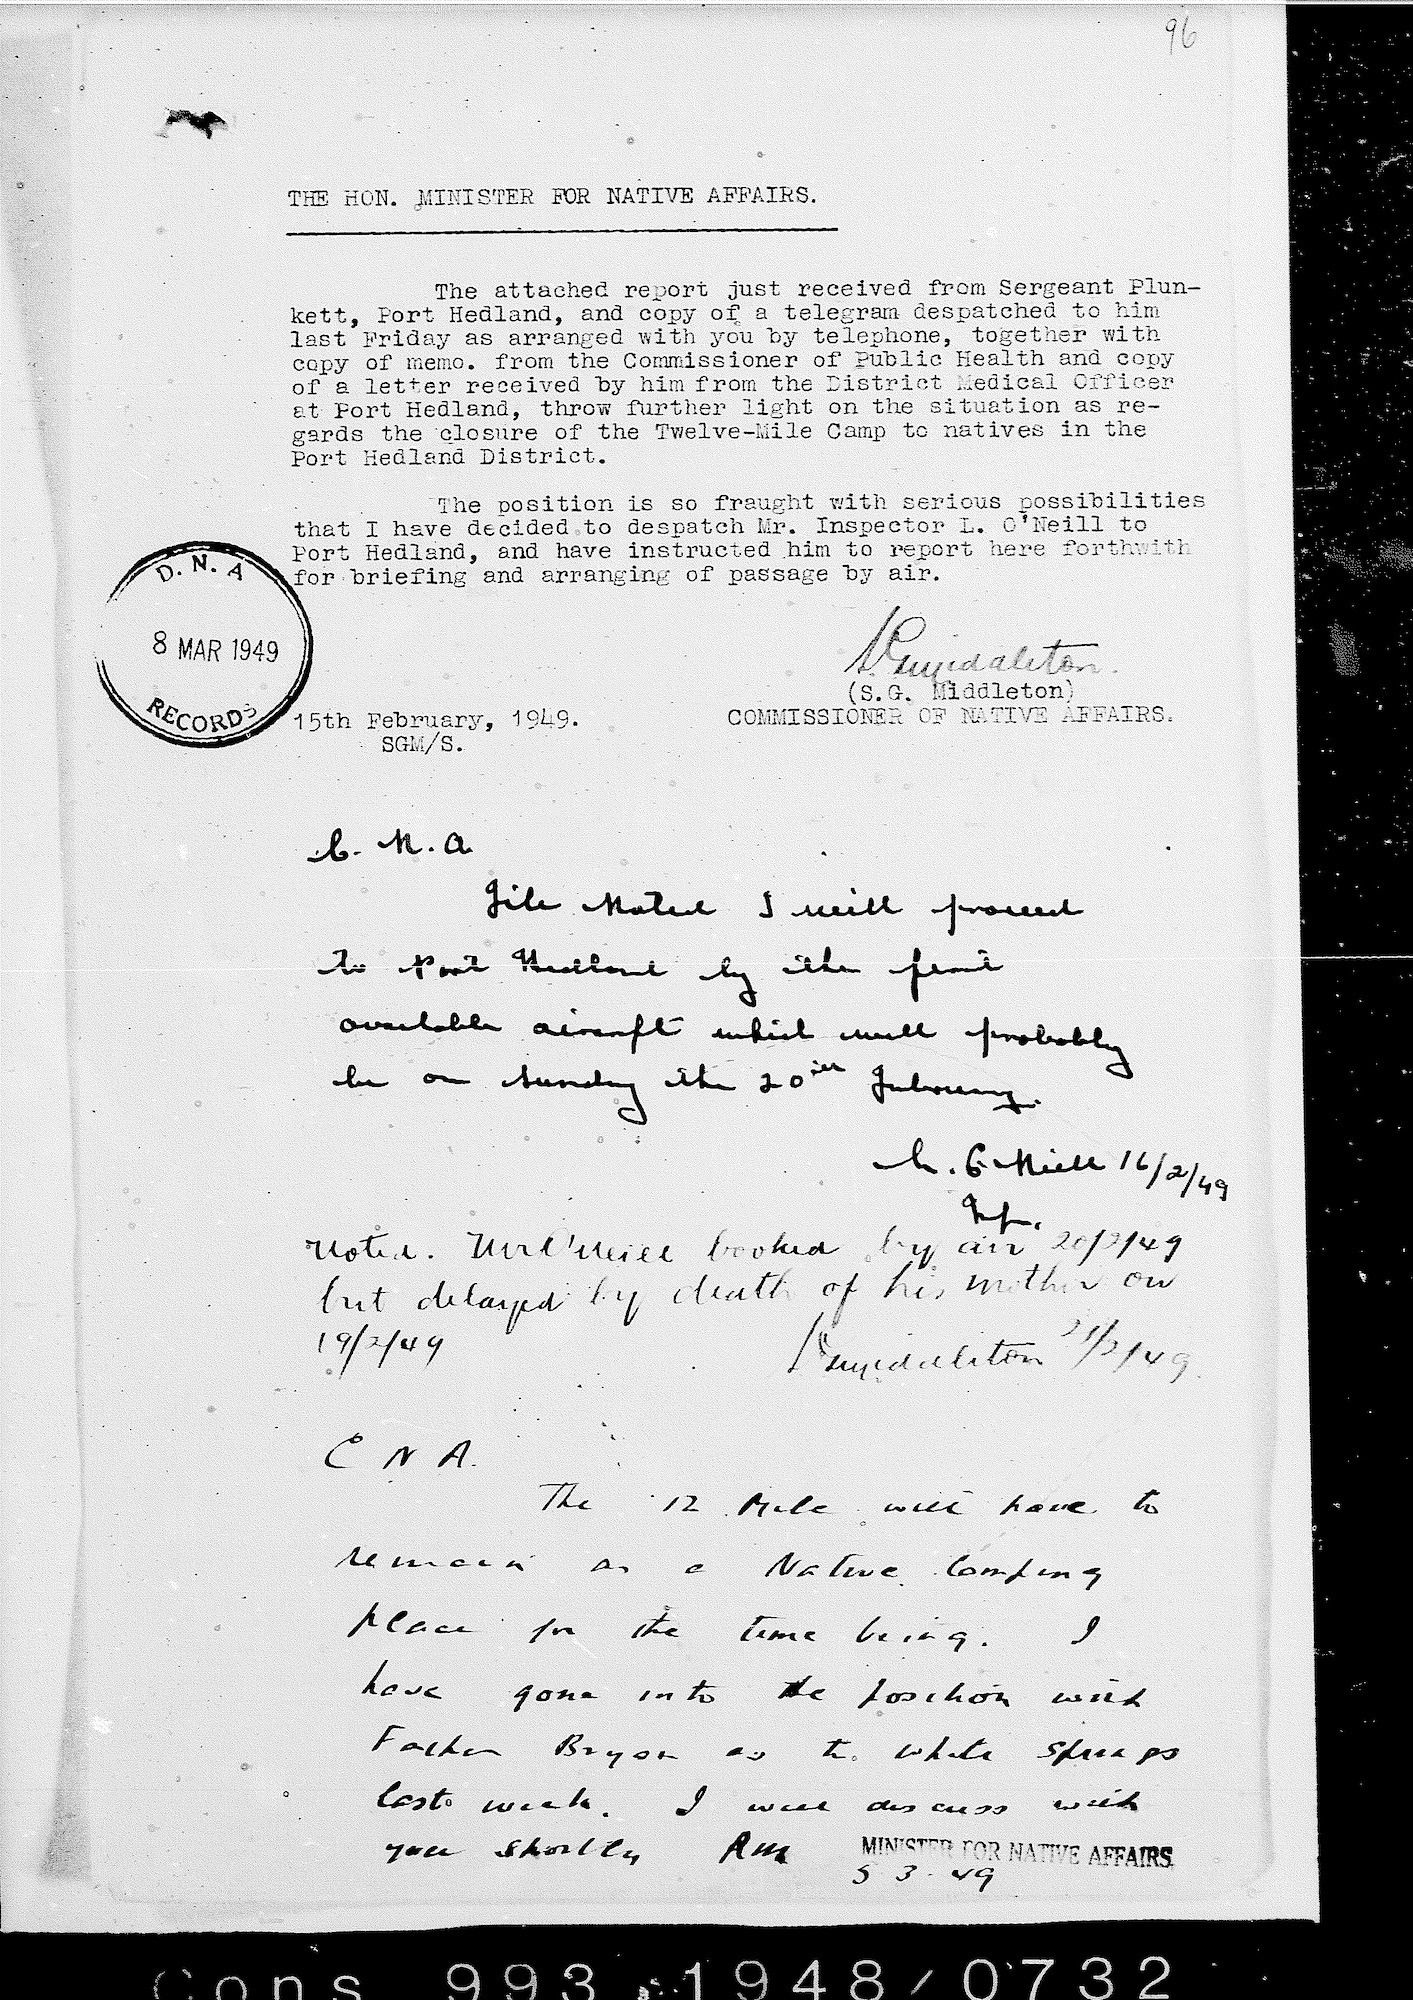 96
THE HON. MINISTER FOR NATIVE AFFAIRS.
The attached report just received from Sergeant Plun-
kett, Port Hedland, and copy of a telegram despatched to him
last Friday as arranged with you by telephone, together with
copy of memo. from the Commissioner of Public Health and copy
of a letter received by him from the District Medical Officer
at Port Hedland, throw further light on the situation as re-
gards the closure of the Twelve-Mile Camp to natives in the
Port Hedland District.
The position is so fraught with serious possibilities
that I have decided to despatch Mr. Inspector L. O'Neill to
Port Hedland, and have instructed him to report here forthwith
for briefing and arranging of passage by air.
D. N. A
8 MAR 1949
RECORDS
SGMiddleton.
(S.G. Middleton)
COMMISSIONER OF NATIVE AFFAIRS.
15th February, 1949.
SGM/S.
C. N. A.
File Noted I will proceed
to Port Hedland by the first
available aircraft which will probably
be on Sunday the 20th February.
L. O'Neill 16/2/49
Insp.
Noted. Mr O'Neill booked by air 20/2/49
but delayed by death of his mother on
19/2/49
SGMiddleton 21/2/49.
C N A.
The 12 Mile will have to
remain as a Native Camping
place for the time being. I
have gone into the position with
Father Bryan as to White Springs
last week. I will discuss with
you shortly RM MINISTER FOR NATIVE AFFAIRS
5 3 - 49
Cons 993 1948/0732